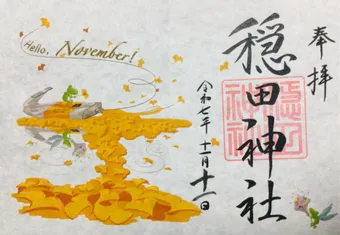 奉拝
穏田神社
令和七年 十一月十一日
Hello, November!